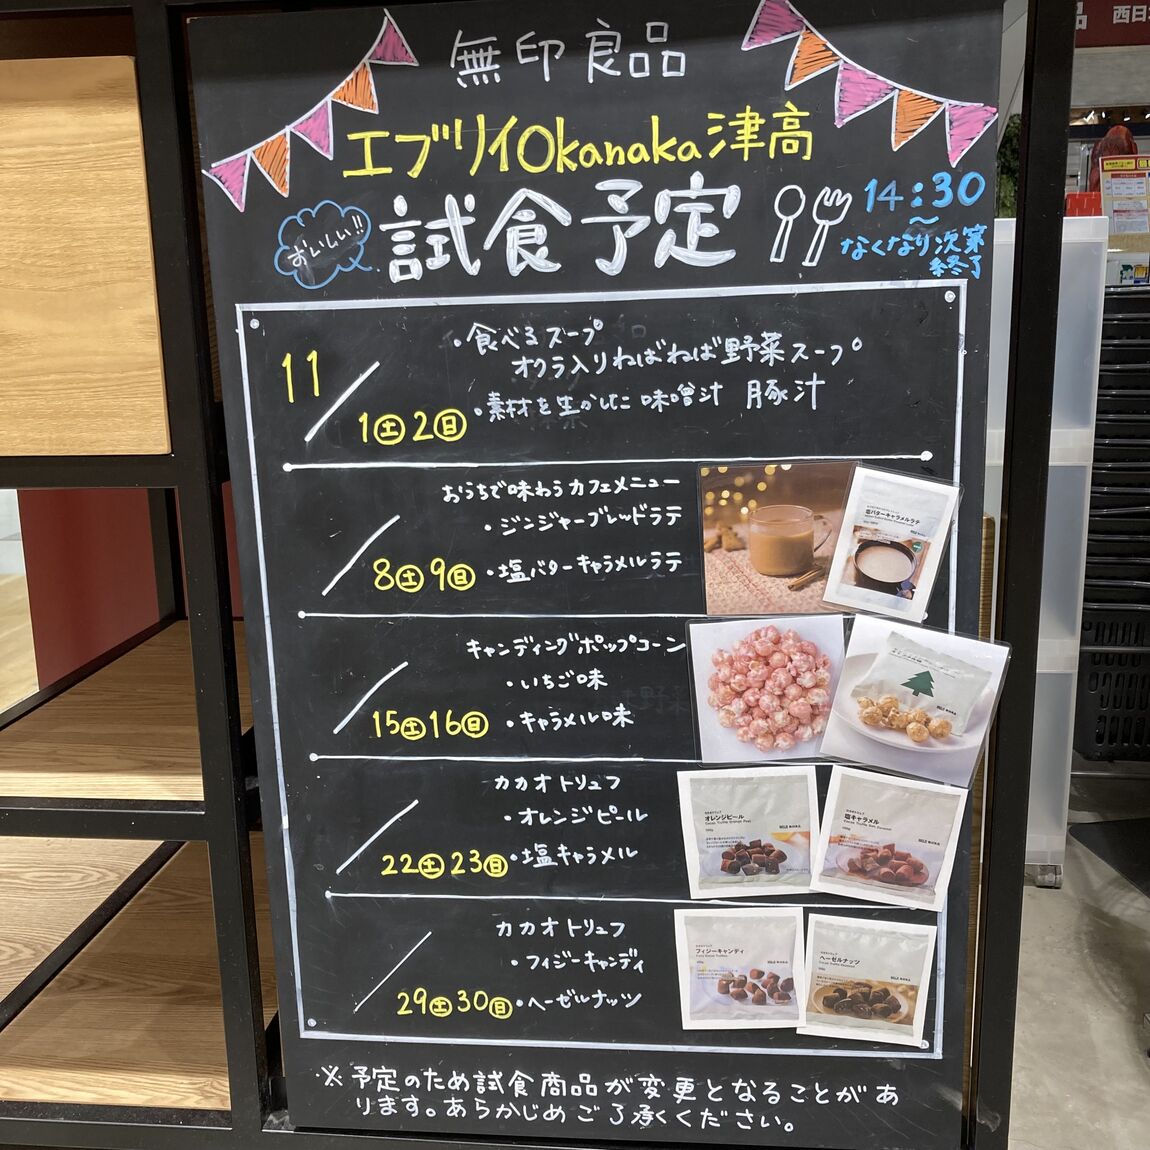 無印良品
エブリイOkanaka津高
おいしい!!
試食予定
14:30
～
なくなり次第
終了
11
1(土)2(日)
・食べるスープ
オクラ入りねばねば野菜スープ
・素材を生かした味噌汁 豚汁
8(土)9(日)
おうちで味わうカフェメニュー
・ジンジャーブレッドラテ
・塩バターキャラメルラテ
塩バターキャラメルラテ
15(土)16(日)
キャンディングポップコーン
・いちご味
・キャラメル味
22(土)23(日)
カカオトリュフ
・オレンジピール
・塩キャラメル
オレンジピール
塩キャラメル
29(土)30(日)
カカオトリュフ
・フィジーキャンディ
・ヘーゼルナッツ
フィジーキャンディ
ヘーゼルナッツ
※予定のため試食商品が変更となることがあ
ります。あらかじめご了承ください。
西日